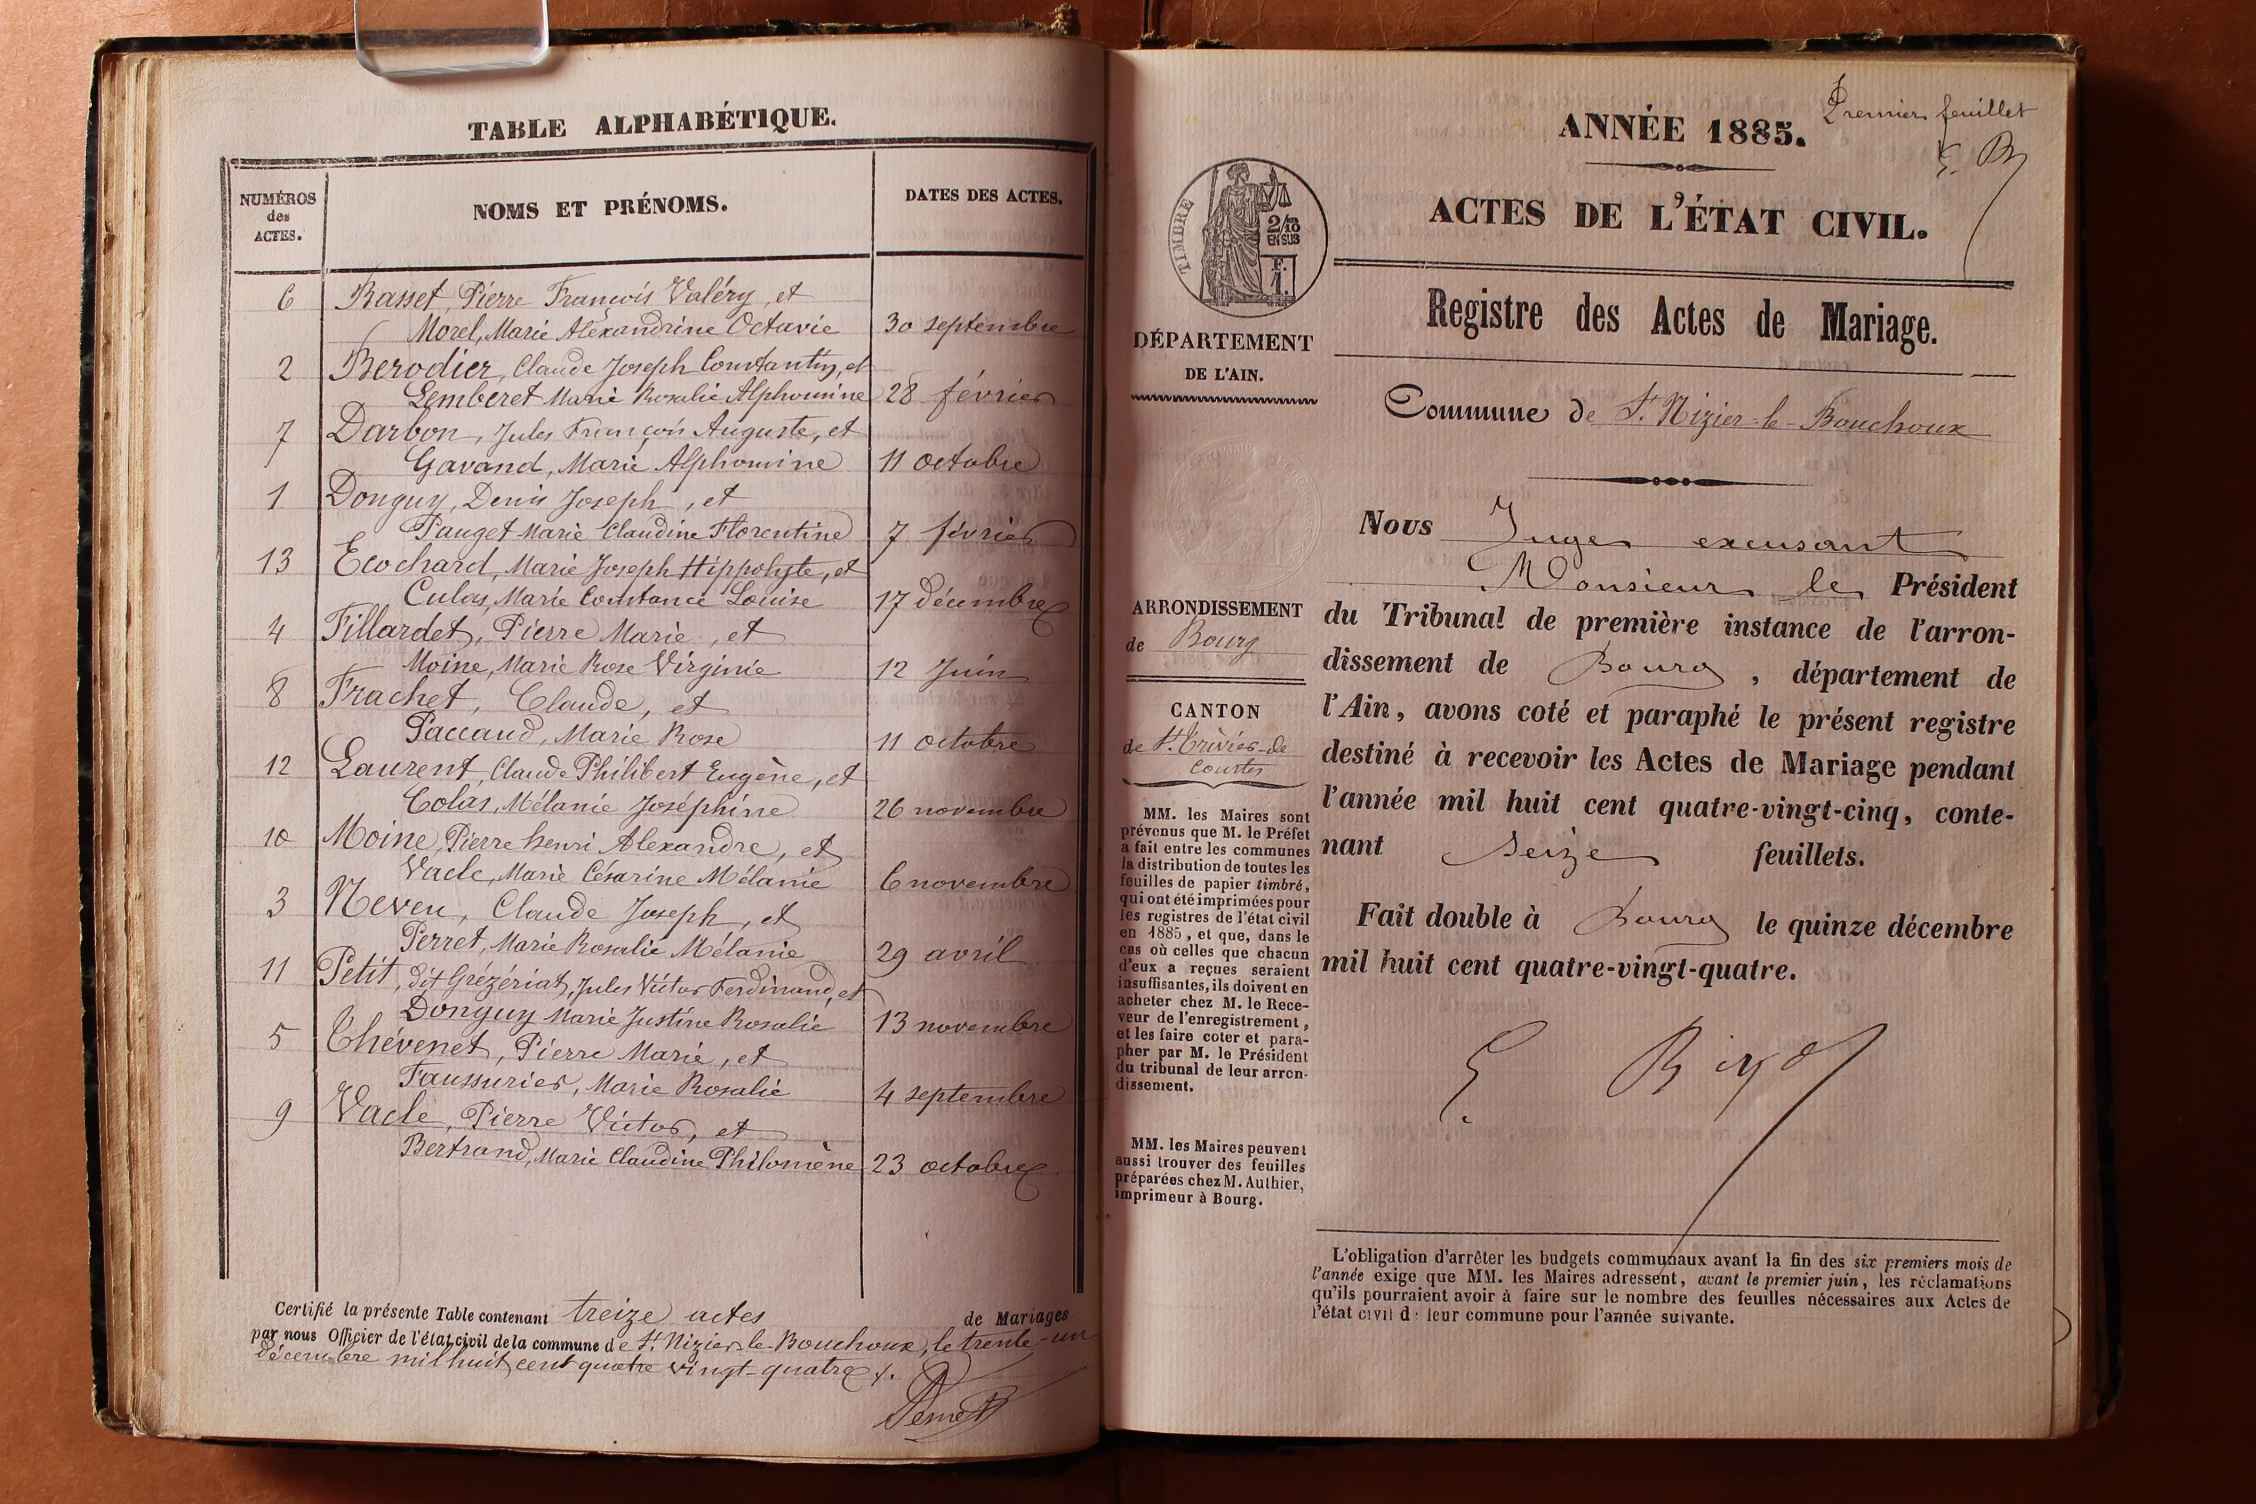 TABLE ALPHABÉTIQUE.
NUMÉROS
des
ACTES.
NOMS ET PRÉNOMS.
DATES DES ACTES.
6 Basset, Pierre François Valéry, et
Morel, Marie Alexandrine Octavie 30 septembre
2 Berodier, Claude Joseph Constantin, et
Lemberet Marie Rosalie Alphonsine 28 février
7 Darbon, Jules François Auguste, et
Gavand, Marie Alphonsine 11 octobre
1 Donguy, Denis Joseph, et
Pauget Marie Claudine Florentine 7 février
13 Ecochard, Marie Joseph Hippolyte, et
Culas, Marie Constance Louise 17 décembre
4 Fillardet, Pierre Marie, et
Moine, Marie Rose Virginie 12 Juin
8 Frachet, Claude, et
Paccaud, Marie Rose 11 octobre
12 Laurent, Claude Philibert Eugène, et
Colas, Mélanie Joséphine 26 novembre
10 Moine, Pierre henri Alexandre, et
Vacle, Marie Césarine Mélanie 6 novembre
3 Neveu, Claude Joseph, et
Perret, Marie Rosalie Mélanie 29 avril
11 Petit, dit Grézériat, Jules Victor Ferdinand, et
Donguy Marie Justine Rosalie 13 novembre
5 Chévenet, Pierre Marie, et
Faussurier, Marie Rosalie 4 septembre
9 Vacle, Pierre Victor, et
Bertrand, Marie Claudine Philomène 23 octobre
Certifié la présente Table contenant treize actes de Mariages
par nous Officier de l'état civil de la commune de St. Nizier-le-Bouchoux, le trente-un
décembre mil huit cent quatre vingt-quatre
Premier feuillet
E. B
ANNÉE 1885.
ACTES DE L'ÉTAT CIVIL.
TIMBRE
2/10
EN SUS
F.
1.
Registre des Actes de Mariage.
DÉPARTEMENT
DE L'AIN.
Commune de St. Nizier-le-Bouchoux
Nous Juge excusant
Monsieur le Président
du Tribunal de première instance de l'arron-
dissement de Bourg, département de
l'Ain, avons coté et paraphé le présent registre
destiné à recevoir les Actes de Mariage pendant
l'année mil huit cent quatre-vingt-cinq, conte-
nant seize feuillets.
Fait double à Bourg le quinze décembre
mil huit cent quatre-vingt-quatre.
ARRONDISSEMENT
de Bourg
CANTON
de St. Trivier-de
Courtes
MM. les Maires sont
prévenus que M. le Préfet
a fait entre les communes
la distribution de toutes les
feuilles de papier timbré,
qui ont été imprimées pour
les registres de l'état civil
en 1885, et que, dans le
cas où celles que chacun
d'eux a reçues seraient
insuffisantes, ils doivent en
acheter chez M. le Rece-
veur de l'enregistrement,
et les faire coter et para-
pher par M. le Président
du tribunal de leur arron-
dissement.
MM. les Maires peuvent
aussi trouver des feuilles
préparées chez M. Authier,
imprimeur à Bourg.
L'obligation d'arrêter les budgets communaux avant la fin des six premiers mois de
l'année exige que MM. les Maires adressent, avant le premier juin, les réclamations
qu'ils pourraient avoir à faire sur le nombre des feuilles nécessaires aux Actes de
l'état civil de leur commune pour l'année suivante.